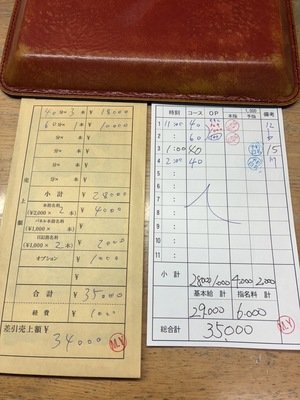 40分× 3 本 ¥ 18000
60分× 1 本 ¥ 10000
分× 本 ¥
分× 本 ¥
分× 本 ¥
売上額
小計 ¥ 28000
本指名料 (¥2,000× 2 本) ¥ 4000
パネル指名料 (¥1,000× 本) ¥
日記指名料 (¥1,000× 2 本) ¥ 2000
オプション ¥ 1000
¥
合計 ¥ 35000
経費 ¥ 1000
差引売上額 ¥
34000
M.Y
時刻 コース OP 本指 1,000 予指 備考
1 11:00 40 12
2 : 60
3 1:00 40 15
4 2:00 40 M
5 :
6 :
7 :
8 :
9 :
10 :
11 :
小計 28000 1000 4000 2,000
基本給計 指名料計
29,000 6,000
総合計 35,000
M.Y